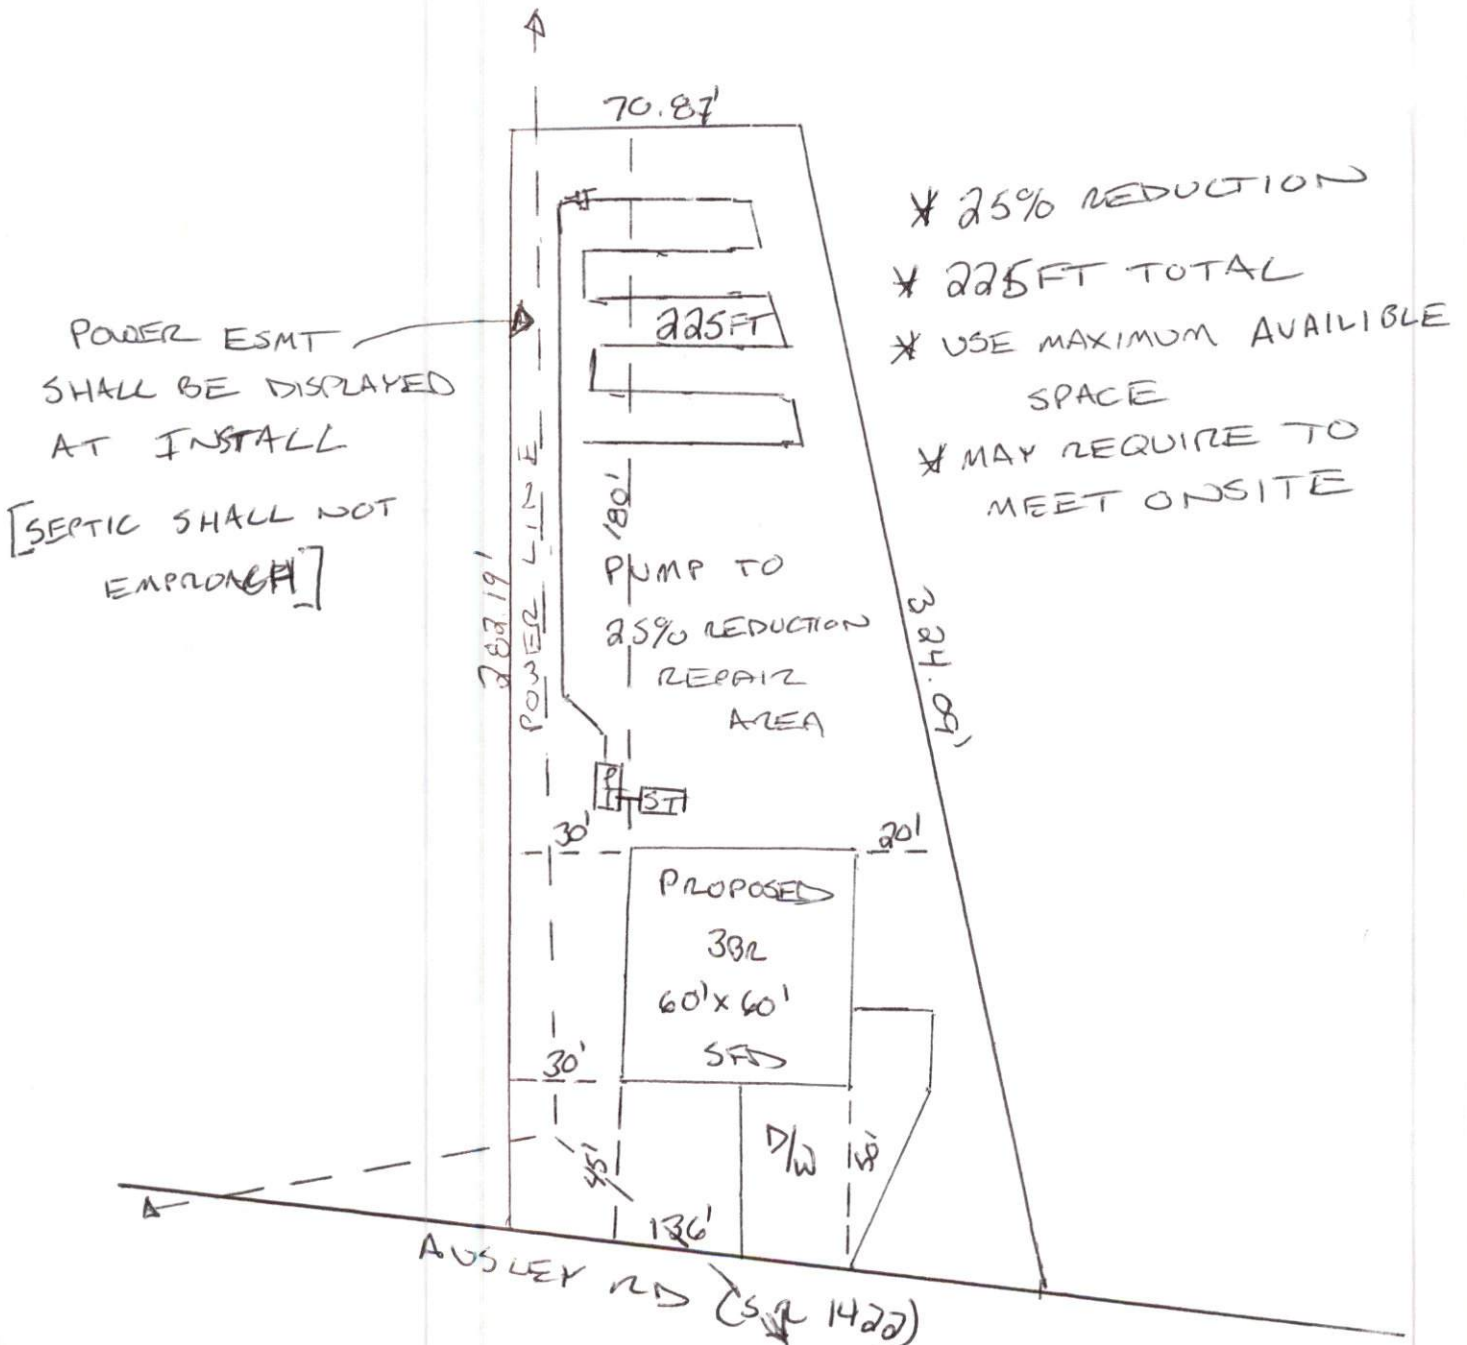 70.87'
* 25% REDUCTION
* 225FT TOTAL
* USE MAXIMUM AVAILIBLE
SPACE
* MAY REQUIRE TO
MEET ONSITE
POWER ESMT
SHALL BE DISPLAYED
AT INSTALL
[SEPTIC SHALL NOT
EMPROACH]
225FT
POWER LINE
180'
282.19'
324.09'
PUMP TO
25% REDUCTION
REPAIR
AREA
ST
30'
20'
PROPOSED
3BR
60'x60'
SFD
30'
45'
D/W
50'
136'
AUSLEY RD (SR 1422)